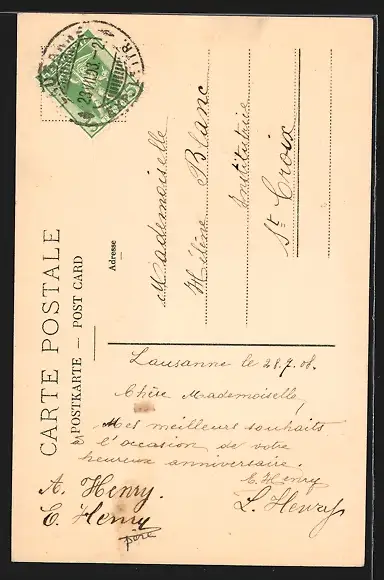 CARTE POSTALE
POSTKARTE — POST CARD
Adresse
Mademoiselle
Hélène Blanc
Institutrice
St Croix
Lausanne le 28.7.08.
Chère Mademoiselle,
Mes meilleurs souhaits
à l'occasion de votre
heureux anniversaire.
E. Henry
A. Henry. L. Henry
E. Henry
père